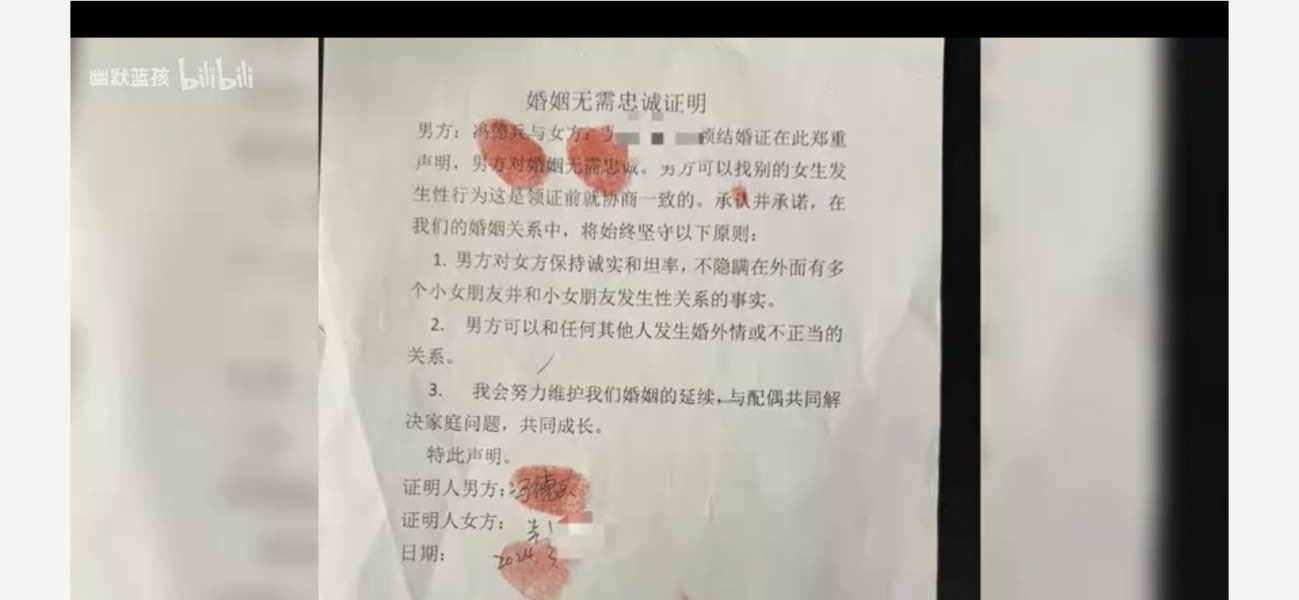 幽默篮孩 bilibili
婚姻无需忠诚证明
男方：冯德兵与女方：领结婚证在此郑重
声明，男方对婚姻无需忠诚。男方可以找别的女生发
生性行为这是领证前就协商一致的。承认并承诺，在
我们的婚姻关系中，将始终坚守以下原则：
1. 男方对女方保持诚实和坦率，不隐瞒在外面有多
个小女朋友并和小女朋友发生性关系的事实。
2. 男方可以和任何其他人发生婚外情或不正当的
关系。
3. 我会努力维护我们婚姻的延续，与配偶共同解
决家庭问题，共同成长。
特此声明。
证明人男方：冯德兵
证明人女方：
日期：2024.3